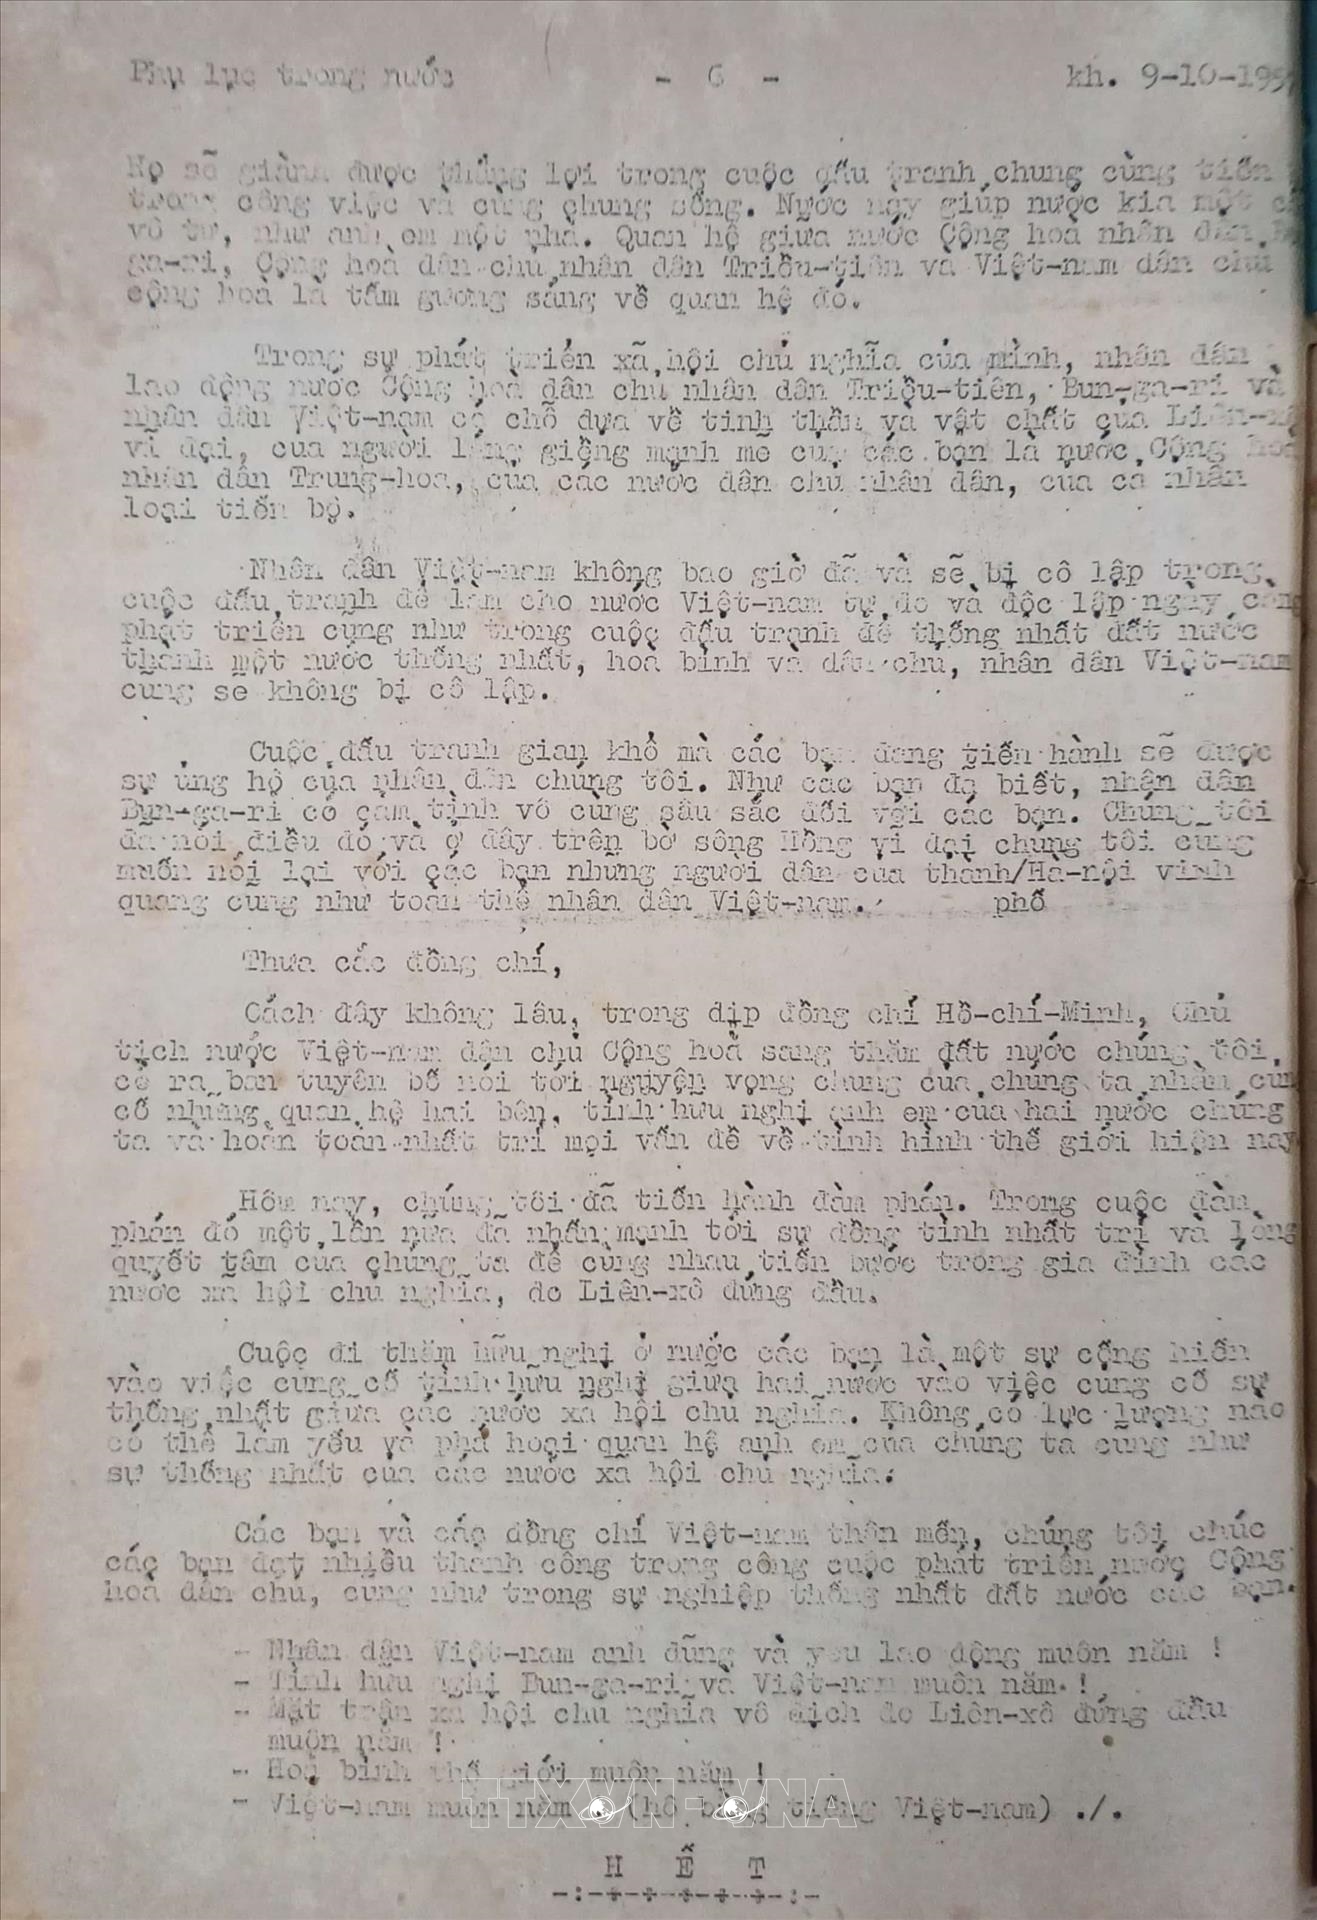 Phụ lục trong nước - 6 - kh. 9-10-195
Họ sẽ giành được thắng lợi trong cuộc đấu tranh chung cùng tiến
trong công việc và cùng chung sống. Nước này giúp nước kia một
vô tư, như anh em một nhà. Quan hệ giữa nước Cộng hoà nhân dân
ga-ri, Cộng hoà dân chủ nhân dân Triều-tiên và Việt-nam dân chủ
cộng hoà là tấm gương sáng về quan hệ đó.
Trong sự phát triển xã hội chủ nghĩa của mình, nhân dân
lao động nước Cộng hoà dân chủ nhân dân Triều-tiên, Bun-ga-ri và
nhân dân Việt-nam có chỗ dựa về tinh thần và vật chất của Liên-xô
vĩ đại, của người láng giềng mạnh mẽ của các bạn là nước Cộng hoà
nhân dân Trung-hoa, của các nước dân chủ nhân dân, của cả nhân
loại tiến bộ.
Nhân dân Việt-nam không bao giờ đã và sẽ bị cô lập trong
cuộc đấu tranh để làm cho nước Việt-nam tự do và độc lập ngày càng
phát triển cũng như trong cuộc đấu tranh để thống nhất đất nước
thành một nước thống nhất, hoà bình và dân chủ, nhân dân Việt-nam
cũng sẽ không bị cô lập.
Cuộc đấu tranh gian khổ mà các bạn đang tiến hành sẽ được
sự ủng hộ của nhân dân chúng tôi. Như các bạn đã biết, nhân dân
Bun-ga-ri có cảm tình vô cùng sâu sắc đối với các bạn. Chúng tôi
đã nói điều đó và ở đây trên bờ sông Hồng vĩ đại chúng tôi cũng
muốn nói lại với các bạn những người dân của thành/Hà-nội vinh
quang cũng như toàn thể nhân dân Việt-nam. phố
Thưa các đồng chí,
Cách đây không lâu, trong dịp đồng chí Hồ-chí-Minh, Chủ
tịch nước Việt-nam dân chủ Cộng hoà sang thăm đất nước chúng tôi,
có ra bản tuyên bố nói tới nguyện vọng chung của chúng ta nhằm củng
cố những quan hệ hai bên, tình hữu nghị anh em của hai nước chúng
ta và hoàn toàn nhất trí mọi vấn đề về tình hình thế giới hiện nay
Hôm nay, chúng tôi đã tiến hành đàm phán. Trong cuộc đàm
phán đó một lần nữa đã nhấn mạnh tới sự đồng tình nhất trí và lòng
quyết tâm của chúng ta để cùng nhau tiến bước trong gia đình các
nước xã hội chủ nghĩa, do Liên-xô đứng đầu.
Cuộc đi thăm hữu nghị ở nước các bạn là một sự cống hiến
vào việc củng cố tình hữu nghị giữa hai nước vào việc củng cố sự
thống nhất giữa các nước xã hội chủ nghĩa. Không có lực lượng nào
có thể làm yếu và phá hoại quan hệ anh em của chúng ta cũng như
sự thống nhất của các nước xã hội chủ nghĩa.
Các bạn và các đồng chí Việt-nam thân mến, chúng tôi chúc
các bạn đạt nhiều thành công trong công cuộc phát triển nước Cộng
hoà dân chủ, cũng như trong sự nghiệp thống nhất đất nước các bạn.
- Nhân dân Việt-nam anh dũng và yêu lao động muôn năm !
- Tình hữu nghị Bun-ga-ri và Việt-nam muôn năm !
- Mặt trận xã hội chủ nghĩa vô địch do Liên-xô đứng đầu
muôn năm !
- Hoà bình thế giới muôn năm !
- Việt-nam muôn năm (hô bằng tiếng Việt-nam) ./.
TTXVN-VNA
H Ế T
-:-+-+-+-+-+-:-